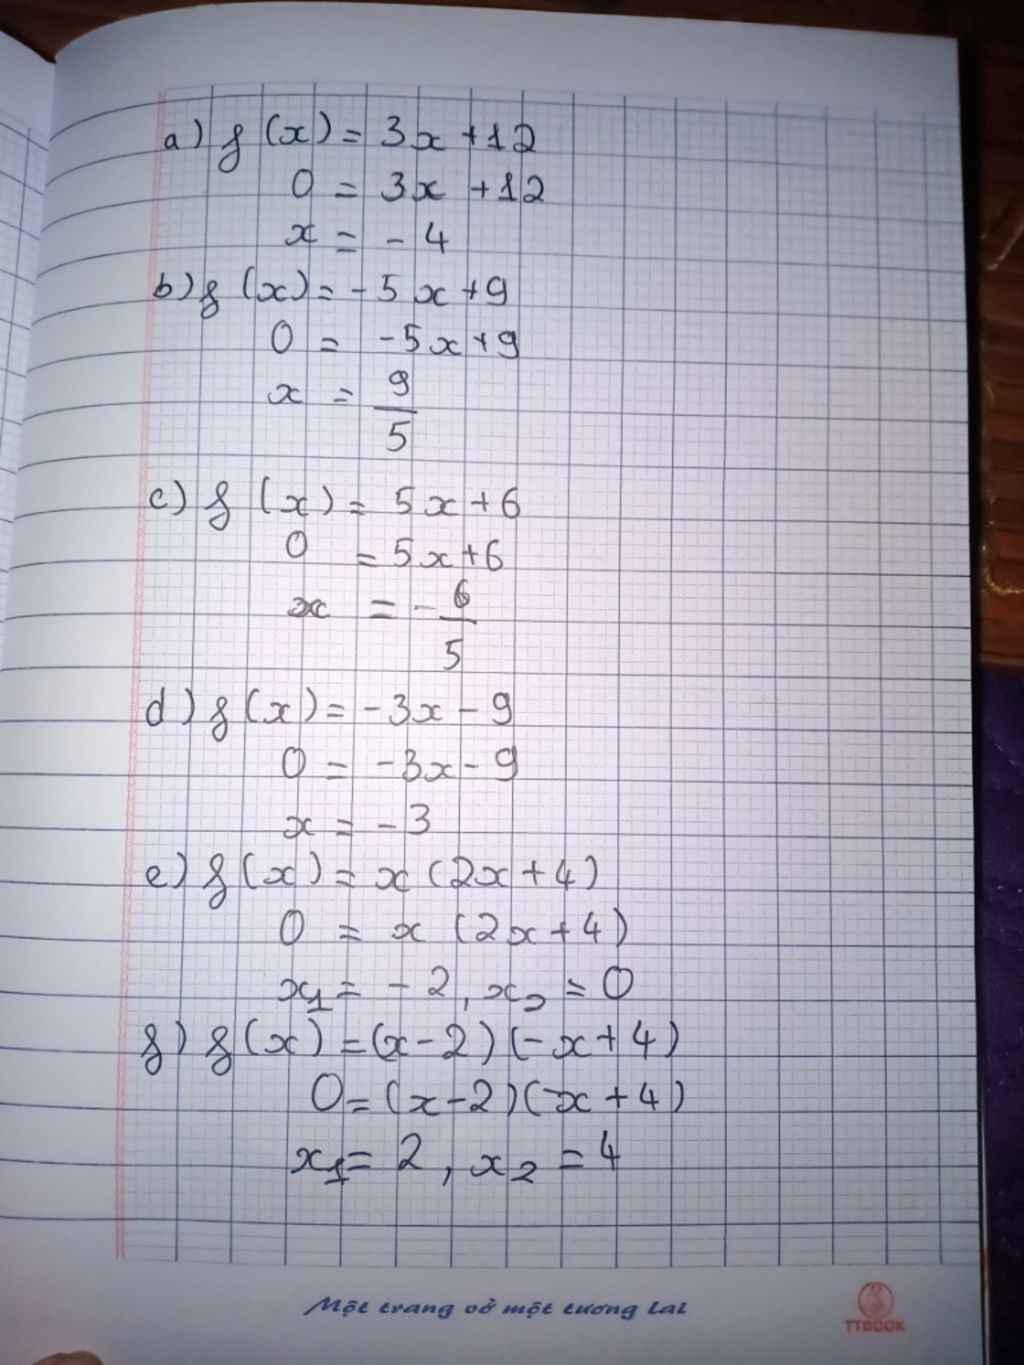 a) f(x) = 3x + 12
0 = 3x + 12
x = - 4
b) f(x) = - 5x + 9
0 = -5x + 9
x = 9/5
c) f(x) = 5x + 6
0 = 5x + 6
x = - 6/5
d) f(x) = -3x - 9
0 = -3x - 9
x = -3
e) f(x) = x (2x + 4)
0 = x (2x + 4)
x₁ = - 2, x₂ = 0
f) f(x) = (x - 2) (-x + 4)
0 = (x - 2) (-x + 4)
x₁ = 2, x₂ = 4
Một trang vở một tương lai
TTBOOK